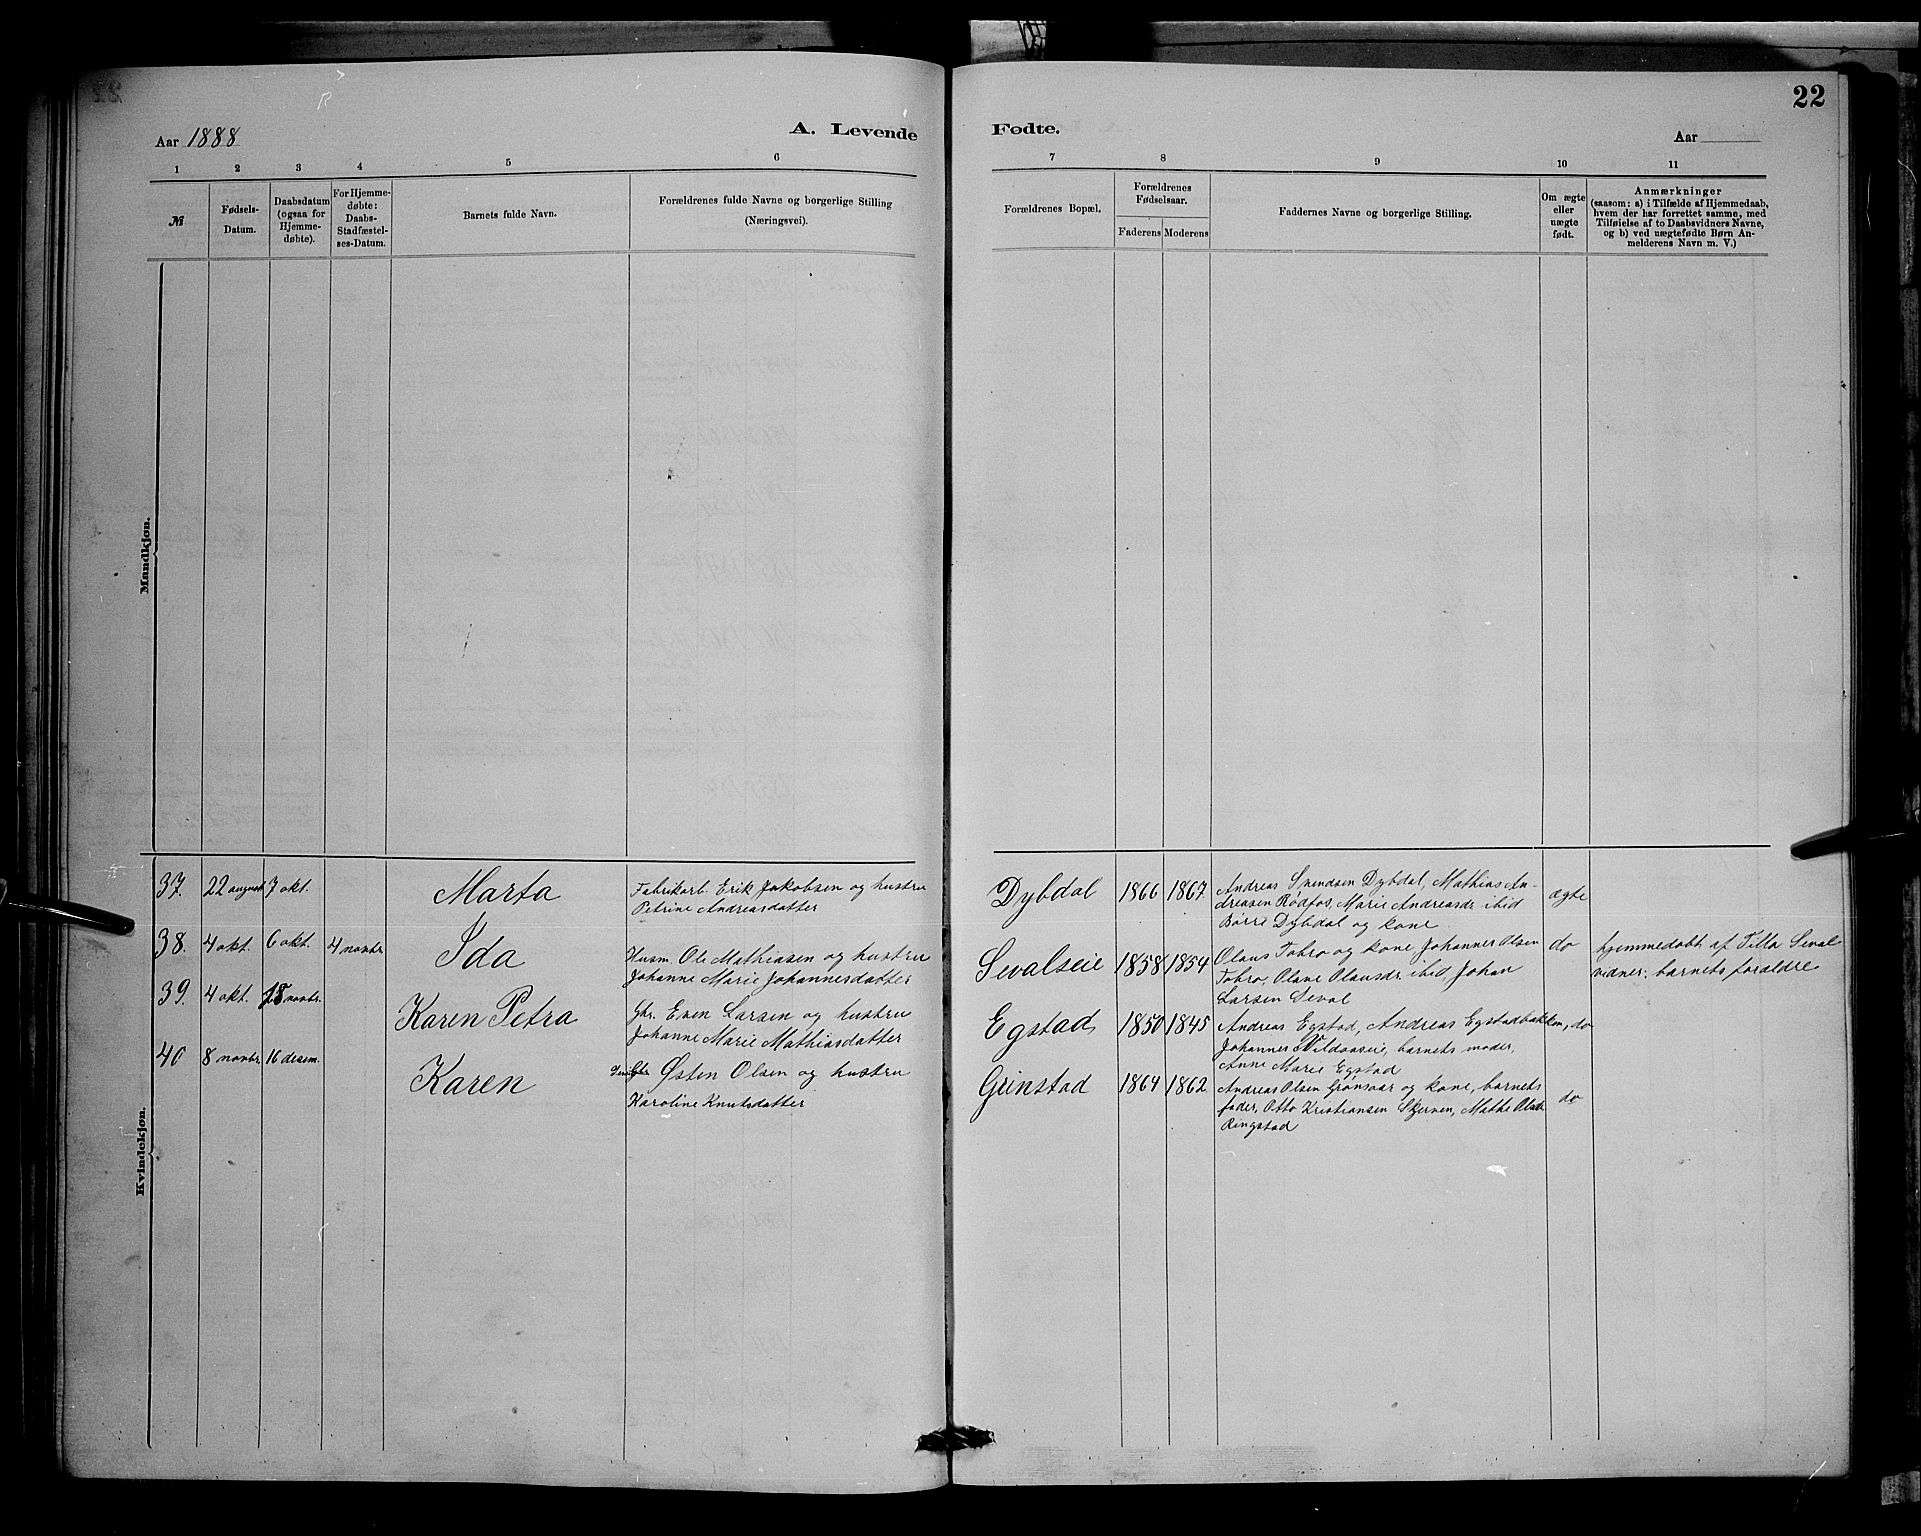 22
Aar 1888
A. Levende
Fødte.
Aar
1 2 3 4 5 6 7 8 9 10 11
№
Fødsels-
Datum.
Daabsdatum
(ogsaa for
Hjemme-
døbte).
For Hjemme-
døbte:
Daabs-
Stadfæstel-
ses-Datum.
Barnets fulde Navn.
Forældrenes fulde Navne og borgerlige Stilling
(Næringsvei).
Forældrenes Bopæl.
Forældrenes
Fødselsaar.
Faderens Moderens
Faddernes Navne og borgerlige Stilling.
Om ægte
eller
uægte
født.
Anmærkninger
(saasom: a) i Tilfælde af Hjemmedaab,
hvem der har forrettet samme, med
Tilføielse af to Daabsvidners Navne,
og b) ved uægtefødte Børn An-
melderens Navn m. V.)
Mandkjøn.
Kvindekjøn.
37. 22 august 7 okt. Marta
Fabrikarb. Erik Jakobsen og hustru
Petrine Andreasdatter
Dybdal 1866 1867
Andreas Svendsen Dybdal, Mathias An-
dreasen Rødfos, Marie Andreasdr. ibid
Børre Dybdal og kone
ægte
38. 4 okt. 6 okt. 4 novbr. Ida
Husm. Ole Mathiasen og hustru
Johanne Marie Johannesdatter
Sevalseie 1858 1854
Olaus Tobro og kone, Johannes Olsen
Tobro, Olane Olausdr. ibid, Johan
Larsen Seval
do
hjemmedøbt af Tilla Seval
vidner: barnets forældre
39. 4 okt. 18 novbr. Karen Petra
Gbr. Even Larsen og hustru
Johanne Marie Mathiasdatter
Egstad 1850 1845
Andreas Egstad, Andreas Egstadbakken,
Johannes Vildaaseie, barnets moder,
Anne Marie Egstad
do
40 8 novbr. 16 desem. Karen
Østen Olsen og hustru
Karoline Knutsdatter
Grinstad 1864 1862
Andreas Olsen Grønsaar og kone, barnets
fader, Otto Kristiansen Skjerven, Mathe Olsdr.
Ringstad
do